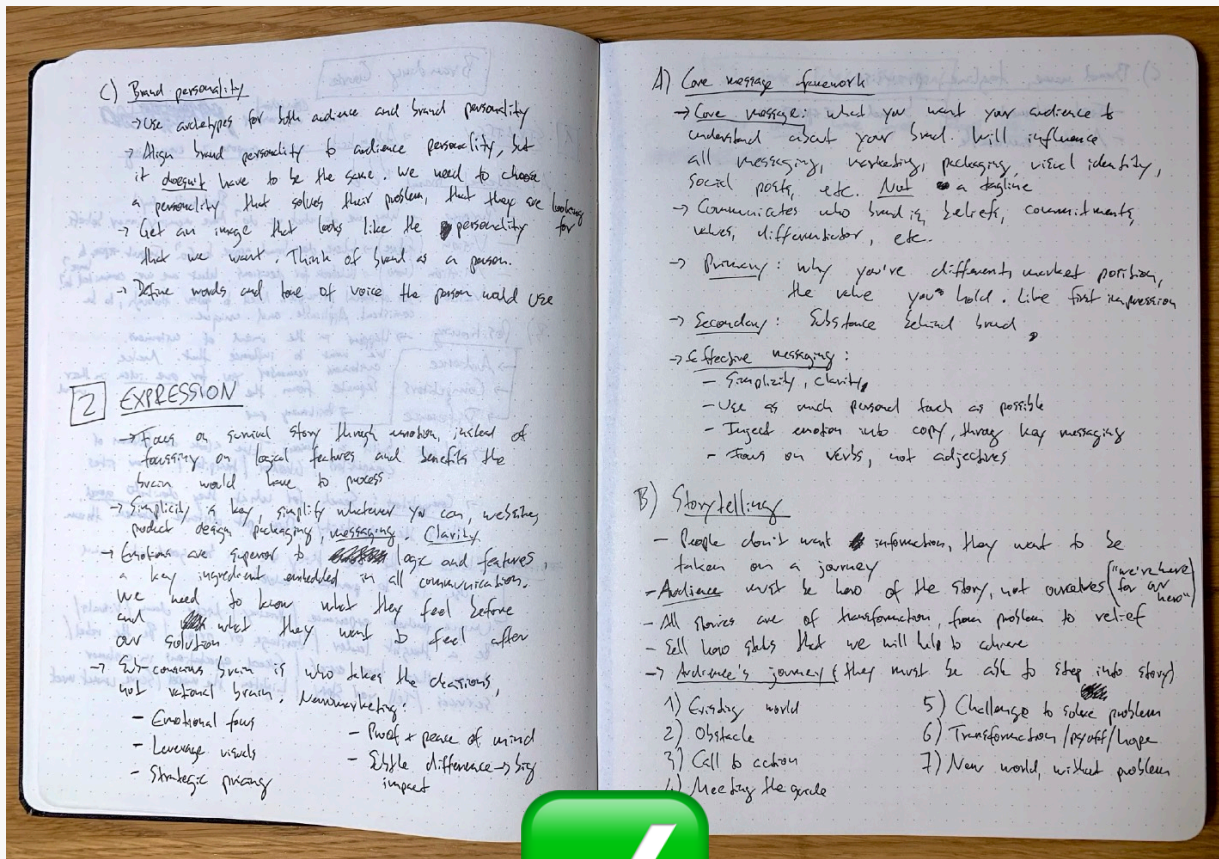 C) Brand personality
→ Use archetypes for both audience and brand personality
→ Align brand personality to audience personality, but
it doesn't have to be the same. We need to choose
a personality that solves their problem, that they are looking
for
→ Get an image that looks like the personality
that we want. Think of brand as a person.
→ Define words and tone of voice the person would use
2 EXPRESSION
→ Focus on survival story through emotion, instead of
focussing on logical features and benefits the
brain would have to process
→ Simplicity is key, simplify whatever you can, websites,
product design packaging, messaging Clarity
→ Emotions are superior to logic and features,
a key ingredient embedded in all communication.
We need to know what they feel before
and what they want to feel after
our solution
→ Sub-conscious brain is who takes the decisions,
not rational brain. Neuromarketing:
- Emotional focus
- Leverage visuals
- Strategic pricing
- Proof + peace of mind
- Subtle difference → big
impact
A) Core message framework
→ Core message: what you want your audience to
understand about your brand. Will influence
all messaging, marketing, packaging, visual identity,
social posts, etc. Not a tagline
→ Communicates who brand is, beliefs, commitments,
values, differentiator, etc.
→ Primary: why you're different, market position,
the value you hold. Like first impression
→ Secondary: Substance behind brand
→ Effective messaging:
- Simplicity, clarity
- Use as much personal touch as possible
- Inject emotion into copy, throug key messaging
- Focus on verbs, not adjectives
B) Storytelling
- People don't want information, they want to be
taken on a journey
- Audience must be hero of the story, not ourselves ("we're here
for our
hero")
- All stories are of transformation, from problem to relief
- Sell hero status that we will help to achieve
→ Audience's journey (they must be able to step into story)
1) Existing world
2) Obstacle
3) Call to action
4) Meeting the guide
5) Challenge to solve problem
6) Transformation/payoff/hope
7) New world, without problem